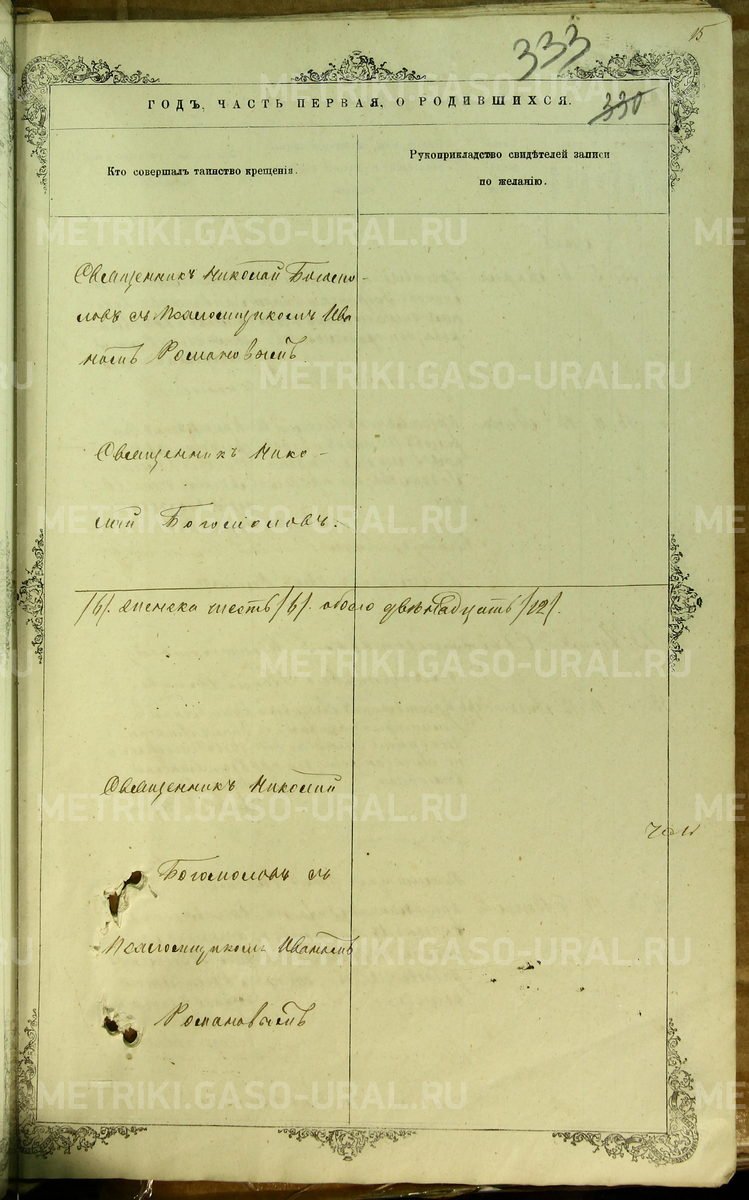 15
333
ГОДЪ, ЧАСТЬ ПЕРВАЯ, О РОДИВШИХСЯ.
330
Кто совершалъ таинство крещенія.
Рукоприкладство свидѣтелей записи
по желанію.
Священникъ Николай Богомо-
ловъ съ Псаломщикомъ Ива
номъ Романовымъ
Священникъ Нико-
лай Богомоловъ.
/6/. женска шесть /6/. обоего двѣнадцать /12/.
Священникъ Николай
Богомоловъ съ
Псаломщикомъ Иваномъ
Романовымъ
METRIKI.GASO-URAL.RU